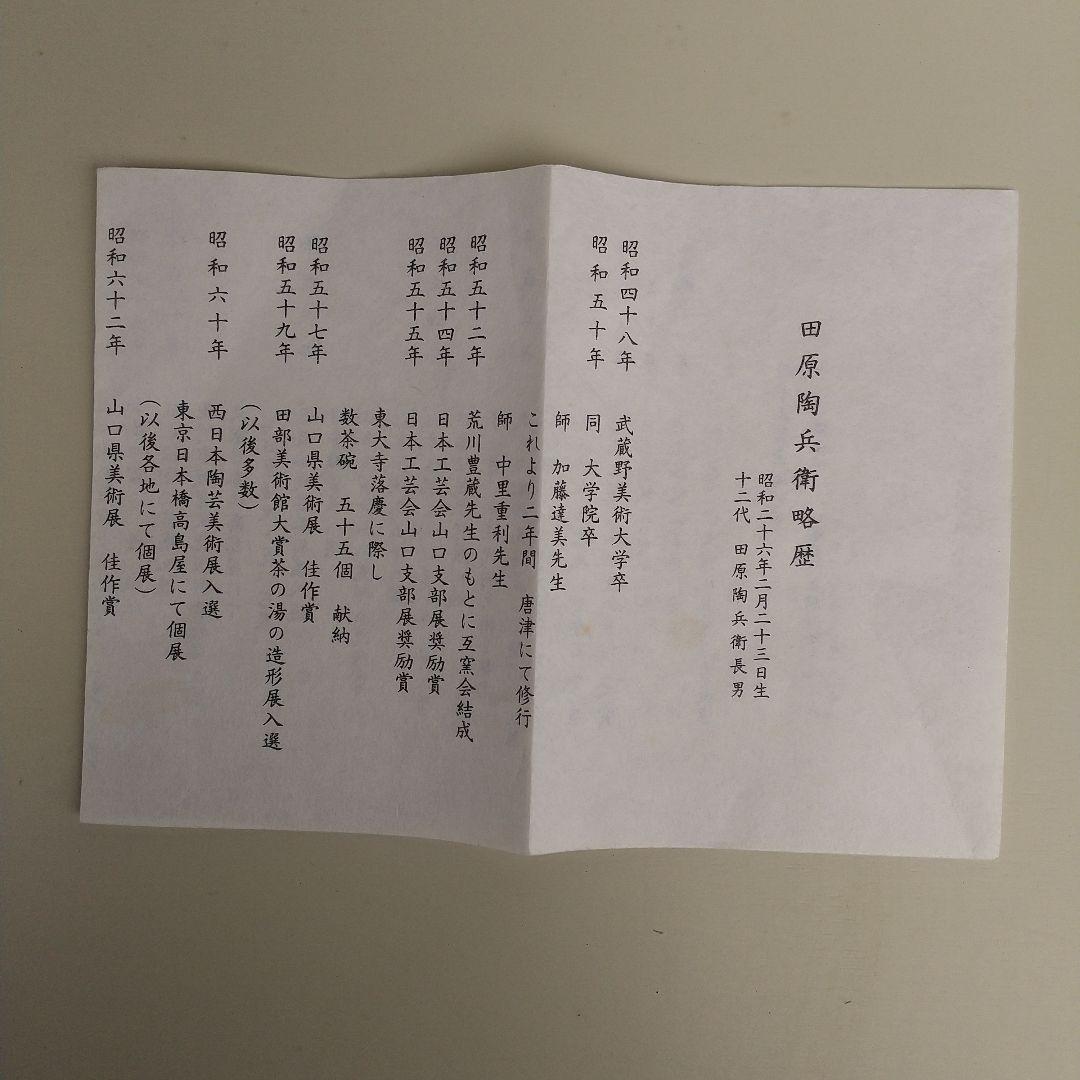 田原陶兵衛略歴
昭和二十六年二月二十三日生
十二代 田原陶兵衛長男
昭和四十八年 武蔵野美術大学卒
昭和五十年 同 大学院卒
師 加藤達美先生
これより二年間 唐津にて修行
師 中里重利先生
昭和五十二年 荒川豊蔵先生のもとに互窯会結成
昭和五十四年 日本工芸会山口支部展奨励賞
昭和五十五年 日本工芸会山口支部展奨励賞
東大寺落慶に際し
数茶碗 五十五個 献納
昭和五十七年 山口県美術展 佳作賞
昭和五十九年 田部美術館大賞茶の湯の造形展入選
(以後多数)
昭和六十年 西日本陶芸美術展入選
東京日本橋高島屋にて個展
(以後各地にて個展)
昭和六十二年 山口県美術展 佳作賞